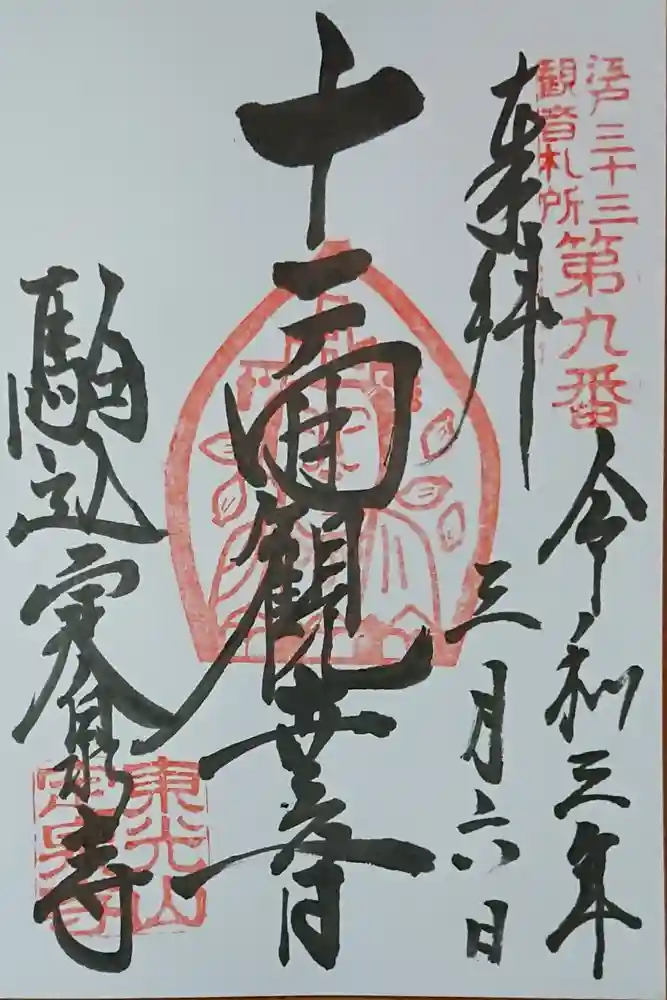 江戸三十三
観音札所
第九番
奉拝
令和三年
三月六日
十一面観世音
駒込 定泉寺
東光山
定泉寺